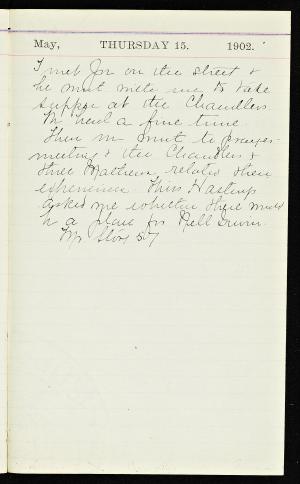 May, THURSDAY 15. 1902.
I met Jon on the street &
he went with me to take
supper at the Chandlers
We had a fine time.
Then we went to prayer-
meeting & the Chandlers &
three related their
experience. Miss Hastings
asked me whether there would
be a place for Nell
Mr 57